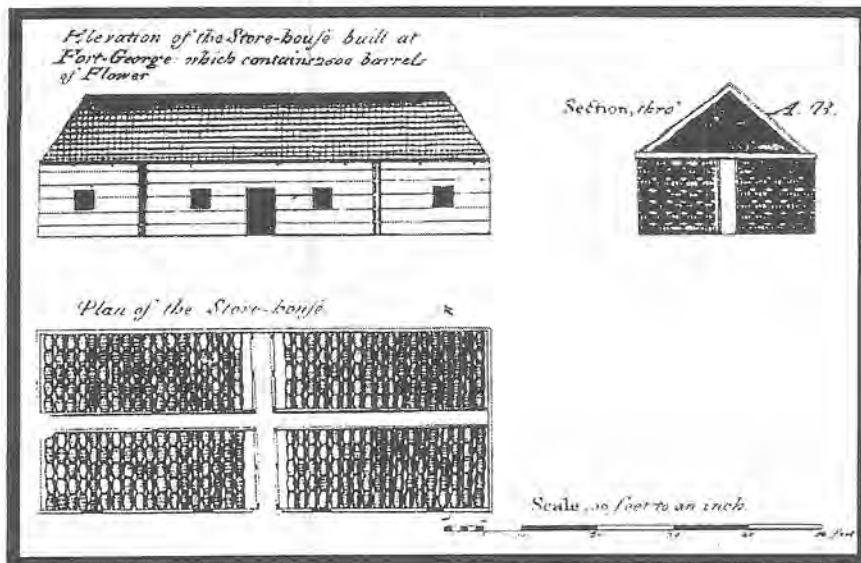 Elevation of the Store-house built at
Fort-George which contains 2600 barrels
of Flower
Section, thro' A. B.
Plan of the Store-house
Scale, feet to an inch.
feet